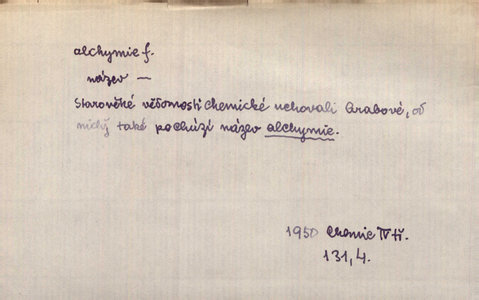 alchymie f.
název —
Starověké vědomosti chemické uchovali Arabové, od
nichž také pochází název alchymie.
1950 Chemie IV tř.
131, 4.